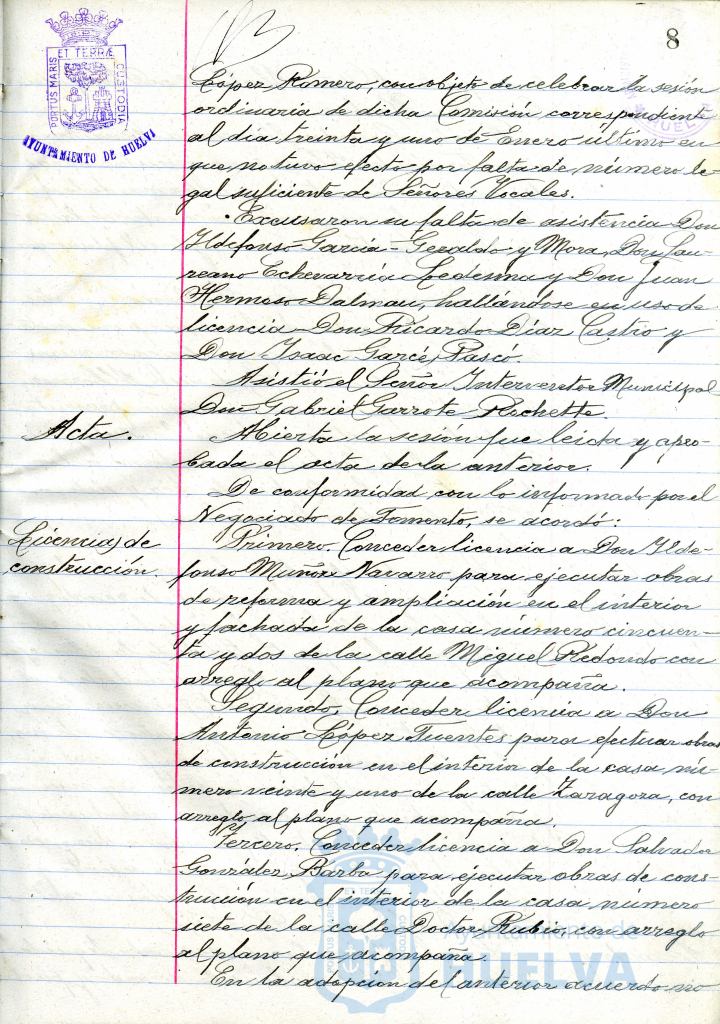 8
PORTUS MARIS
ET TERRÆ
CUSTODIA
AYUNTAMIENTO DE HUELVA
López Romero, con objeto de celebrar la sesión
ordinaria de dicha Comisión correspondiente
al día treinta y uno de Enero último en
que no tuvo efecto por falta de número le-
gal suficiente de Señores Vocales.
Excusaron su falta de asistencia Don
Ildefonso García-Geraldo y Mora, Don Lau-
reano Echevarría Ledesma y Don Juan
Hermoso Dalmau, hallándose en uso de
licencia Don Ricardo Díaz Castro y
Don Isaac Garcé Pascó.
Asistió el Señor Interventor Municipal
Don Gabriel Garrote Rochette.
Acta.
Abierta la sesión fue leida y apro-
bada el acta de la anterior.
De conformidad con lo informado por el
Negociado de Fomento, se acordó:
Licencias de
construcción.
Primero. Conceder licencia a Don Ilde-
fonso Muñoz Navarro para ejecutar obras
de reforma y ampliación en el interior
y fachada de la casa número cincuen-
ta y dos de la calle Miguel Redondo con
arreglo al plano que acompaña.
Segundo. Conceder licencia a Don
Antonio López Fuentes para efectuar obras
de construcción en el interior de la casa nú-
mero veinte y uno de la calle Zaragoza, con
arreglo al plano que acompaña.
Tercero. Conceder licencia a Don Salvador
González Barba para ejecutar obras de cons-
trucción en el interior de la casa número
siete de la calle Doctor Rubio, con arreglo
al plano que acompaña.
En la adopción del anterior acuerdo no
Ayuntamiento de
HUELVA